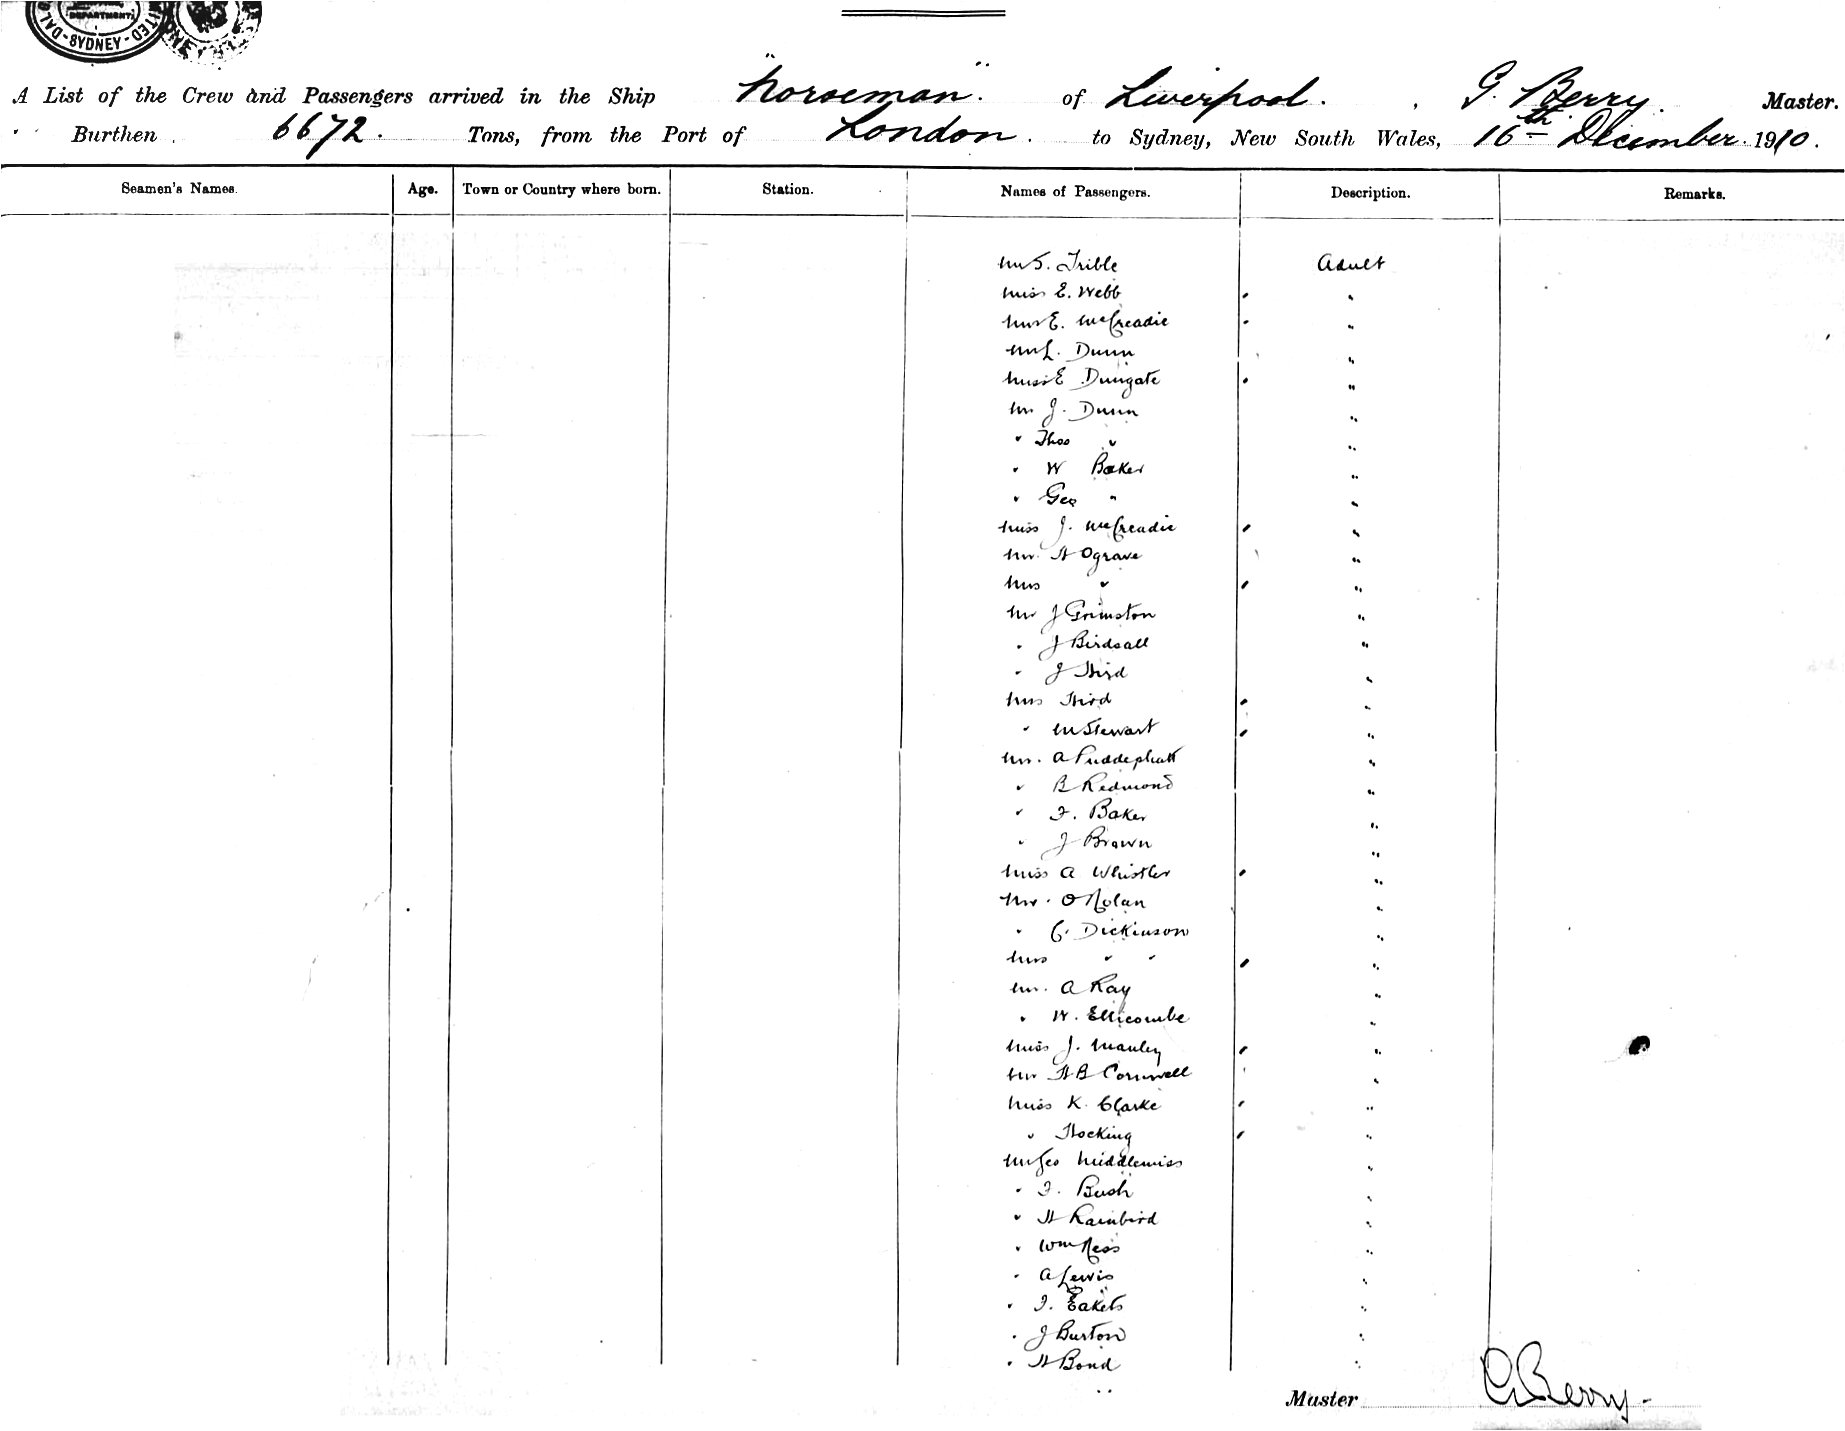 DEPARTMENT
SYDNEY
A List of the Crew and Passengers arrived in the Ship "Norseman". of Liverpool. G. Berry. Master.
Burthen 6672. Tons, from the Port of London. to Sydney, New South Wales, 16th December. 1910.
Seamen's Names. Age. Town or Country where born. Station. Names of Passengers. Description. Remarks.
Mr S. Trible Adult
Miss E. Webb "
Mrs E. McCreadie "
Mr L. Dunn "
Miss E Dungate "
Mr J. Dunn "
" Thos " "
" W Baker "
" Geo " "
Miss J. McCreadie "
Mr. H Ograve "
Mrs " "
Mr J Grimston "
" J Birdsall "
" J Hird "
Mrs Hird "
" M Stewart "
Mr. A Puddephatt "
" B Redmond "
" F. Baker "
" J Brown "
Miss A Whistler "
Mr. O Nolan "
" C. Dickinson "
Mrs " " "
Mr. A Ray "
" W. Ellicombe "
Miss J. Manley "
Mr H B Cornwell "
Miss K. Clarke "
" Hocking "
Mr Geo Middlemiss "
" F. Bush "
" H Rainbird "
" Wm Ness "
" A Lewis "
" F. Eakets "
" J Burton "
" H Bond "
Master G Berry